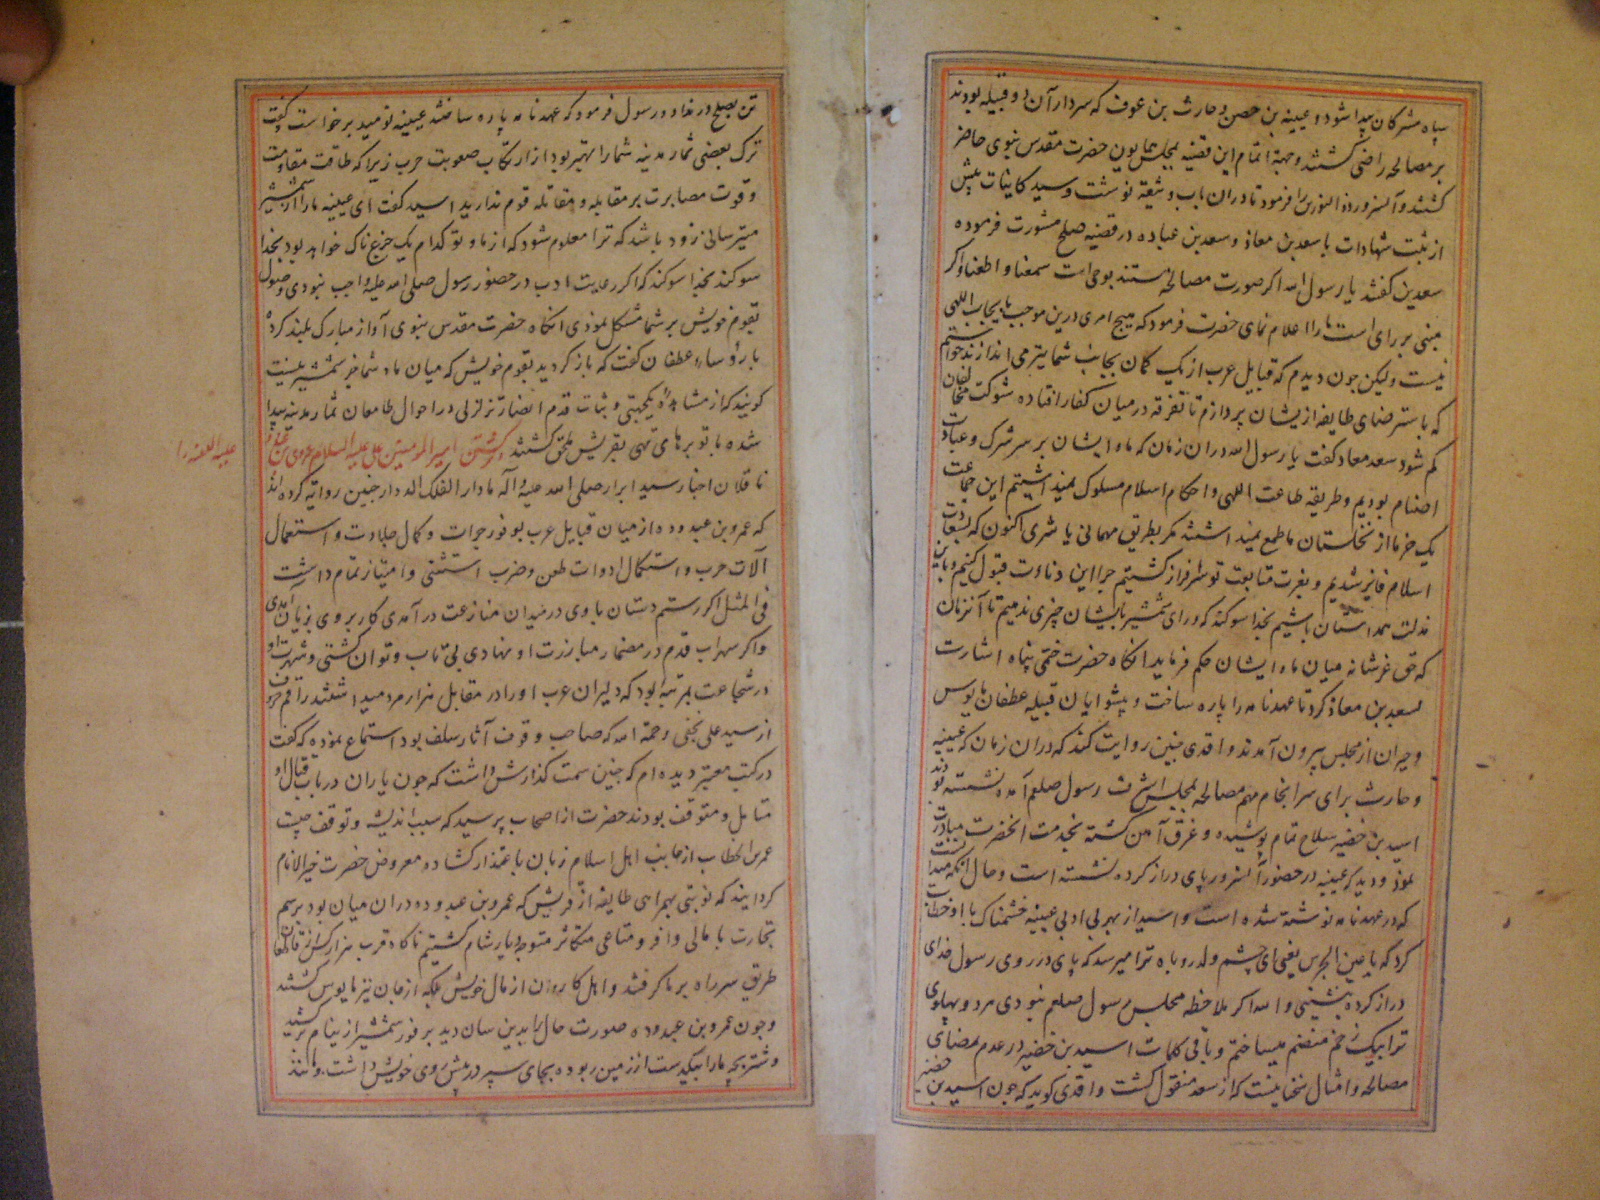 سپاه مشرکان پیدا شود و عیینه بن حصن و حارث بن عوف که سردار آن دو قبیله بودند
بر مصالحه راضی کشتند وجهة اتمام این قضیه بمجلس همایون حضرت مقدس نبوی حاضر
کشتند و آنسرور ذو النورین را فرمود تا دران باب وثیقة نوشت و سید کاینات پیش
از ثبت شهادات با سعد بن معاذ و سعد بن عباده در قضیه صلح مشورت فرموده
سعدین کفتند یا رسول الله اکر صورت مصالحه مستند بوحی است سمعنا و اطعنا و اکر
مبنی بر رای است ما را اعلام نمای حضرت فرمود که هیچ امری درین موجب بایجاب اللهی
نیست ولیکن چون دیدم که قبایل عرب از یک کمان بجانب شما تیر می اندازند خواستم
که باسترضای طایفه ازیشان پردازم تا تفرقه در میان کفار افتاده شوکت مخالفان
کم شود سعد معاد کفت یا رسول الله دران زمان که ما و ایشان بر سر شرک و عبادت
اصنام بودیم و طریقه طاعت اللهی و احکام اسلام مسلوک نمیداشتیم این جماعت
یک خرما از نخلستان ما طمع نمیداشتند مکر بطریق مهمانی یا شری اکنون که بسعادت
اسلام فایز شدیم و بغرت متابعت تو سرافراز کشتیم چرا این دناءت قبول کنیم و باین
مذلت همداستان باشیم بخدا سوکند که ورای شمشیر بایشان چیزی ندهیم تا آنزمان
که حق عز شانه میان ما و ایشان حکم فرماید انکاه حضرت ختمی پناه اشارت
بسعد بن معاذ کرد تا عهدنامه را پاره ساخت و پیشوایان قبیله عطفان مایوس
و حیران از مجلس بیرون آمدند واقدی چنین روایت کند که دران زمان که عیینه
و حارث برای سرانجام مهم مصالحه بمجلس اشرف رسول صلعم آمده نشسته بودند
اسید بن حضیر سلاح تمام پوشیده و غرق آهن کشته بخدمت انحضرت مبادرت
نمود و دید که عیینه در حضور آنسرور پای دراز کرده نشسته است و حال آنکه
که در عهدنامه نوشته شده است و اسید از بهر بی ادبی عیینه خشمناک با او خطاب
کرد که یا عین الهجرس یعنی ای چشم وله روباه ترا میرسد که پای در روی رسول خدای
دراز کرده بنشینی و الله اکر ملاحظه مجلس رسول صلعم نبودی هر دو پهلوی
ترا بیک زخم منضم میساختم و باقی کلمات اسید بن حضیر در عدم بمضای
مصالحه و امثال سخنانیست که از سعد منقول کشت واقدی کوید که چون اسید بن حضیر
تن بصلح در نداد و رسول فرمود که عهدنامه پاره ساختند عیینه نومید برخواست و کفت
ترک بعضی ثمار مدینه شما را بهتر بود از ارتکاب صعوبت حرب زیرا که طاقت مقاومت
و قوت مصابرت بر مقابله و مقاتله قوم ندارید اسید کفت ای عیینه ما را از شمشیر
میترسانی زود باشد که ترا معلوم شود که از ما و تو کدام یک جزع ناک خواهد بود بخدا
سوکند بخدا سوکند که اکر رعایت ادب در حضور رسول صلی الله علیه واجب نبودی وصول
بقوم خویش بر شما مشکل نمودی انکاه حضرت مقدس نبوی آواز مبارک بلند کرده
با رؤساء عطفان کفت که باز کردید بقوم خویش که میان ما و شما جز شمشیر نیست
کویند که از مشاهده یکجهتی و ثبات قدم انصار تزلزلی در احوال طامعان ثمار مدینه پیدا
شده با توبرهای تهی بقریش ملحق کشتند و کشتن امیر المومنین علی علیه السلام عمرو بن عبدود
علیه اللعنه را
ناقلان اخبار سید ابرار صلی الله علیه و آله مادار الفلک الدوار چنین روایة کرده اند
که عمرو بن عبدوده از میان قبایل عرب بوفور جرات و کمال جلادت و استعمال
آلات حرب و استکمال ادوات طعن و ضرب استثنی و امتیاز تمام داشت
فی المثل اکر رستم دستان با وی در میدان منازعت درآمدی کار بروی بزیان آمدی
و اکر سهراب قدم در مضمار مبارزت او نهادی بی تاب و توان کشتی و شهرت او
در شجاعت بمرتبه بود که دلیران عرب او را در مقابل هزار مرد میداشتند راقم حروف
از سید علی نجفی رحمة الله که صاحب وقوف آثار سلف بود استماع نموده که کفت
در کتب معتبر دیده ام که چنین سمت کذارش داشت که چون یاران در باب قتال او
متامل و متوقف بودند حضرت از اصحاب پرسید که سبب اندیشه و توقف چیست
عمر بن الخطاب از جانب اهل اسلام زبان باعتذار کشاده معروض حضرت خیر الانام
کردانید که نوبتی بهمراهی طایفه از قریش که عمرو بن عبدوده دران میان بود برسم
تجارت با مالی وافر و متاعی متکاثر متوجه دیار شام کشتیم ناکاه قرب هزار کس از قاطعان
طریق سر راه بر ما کرفتند و اهل کاروان از مال خویش بلکه از جان نیز مایوس کشتند
و چون عمرو بن عبدوده صورت حال بدین سان دید بر فور شمشیر از نیام برکشید
و شتر بچه مارا بیکدست از زمین ربوده بجای سپر در پیش روی خویش داشت و مانند